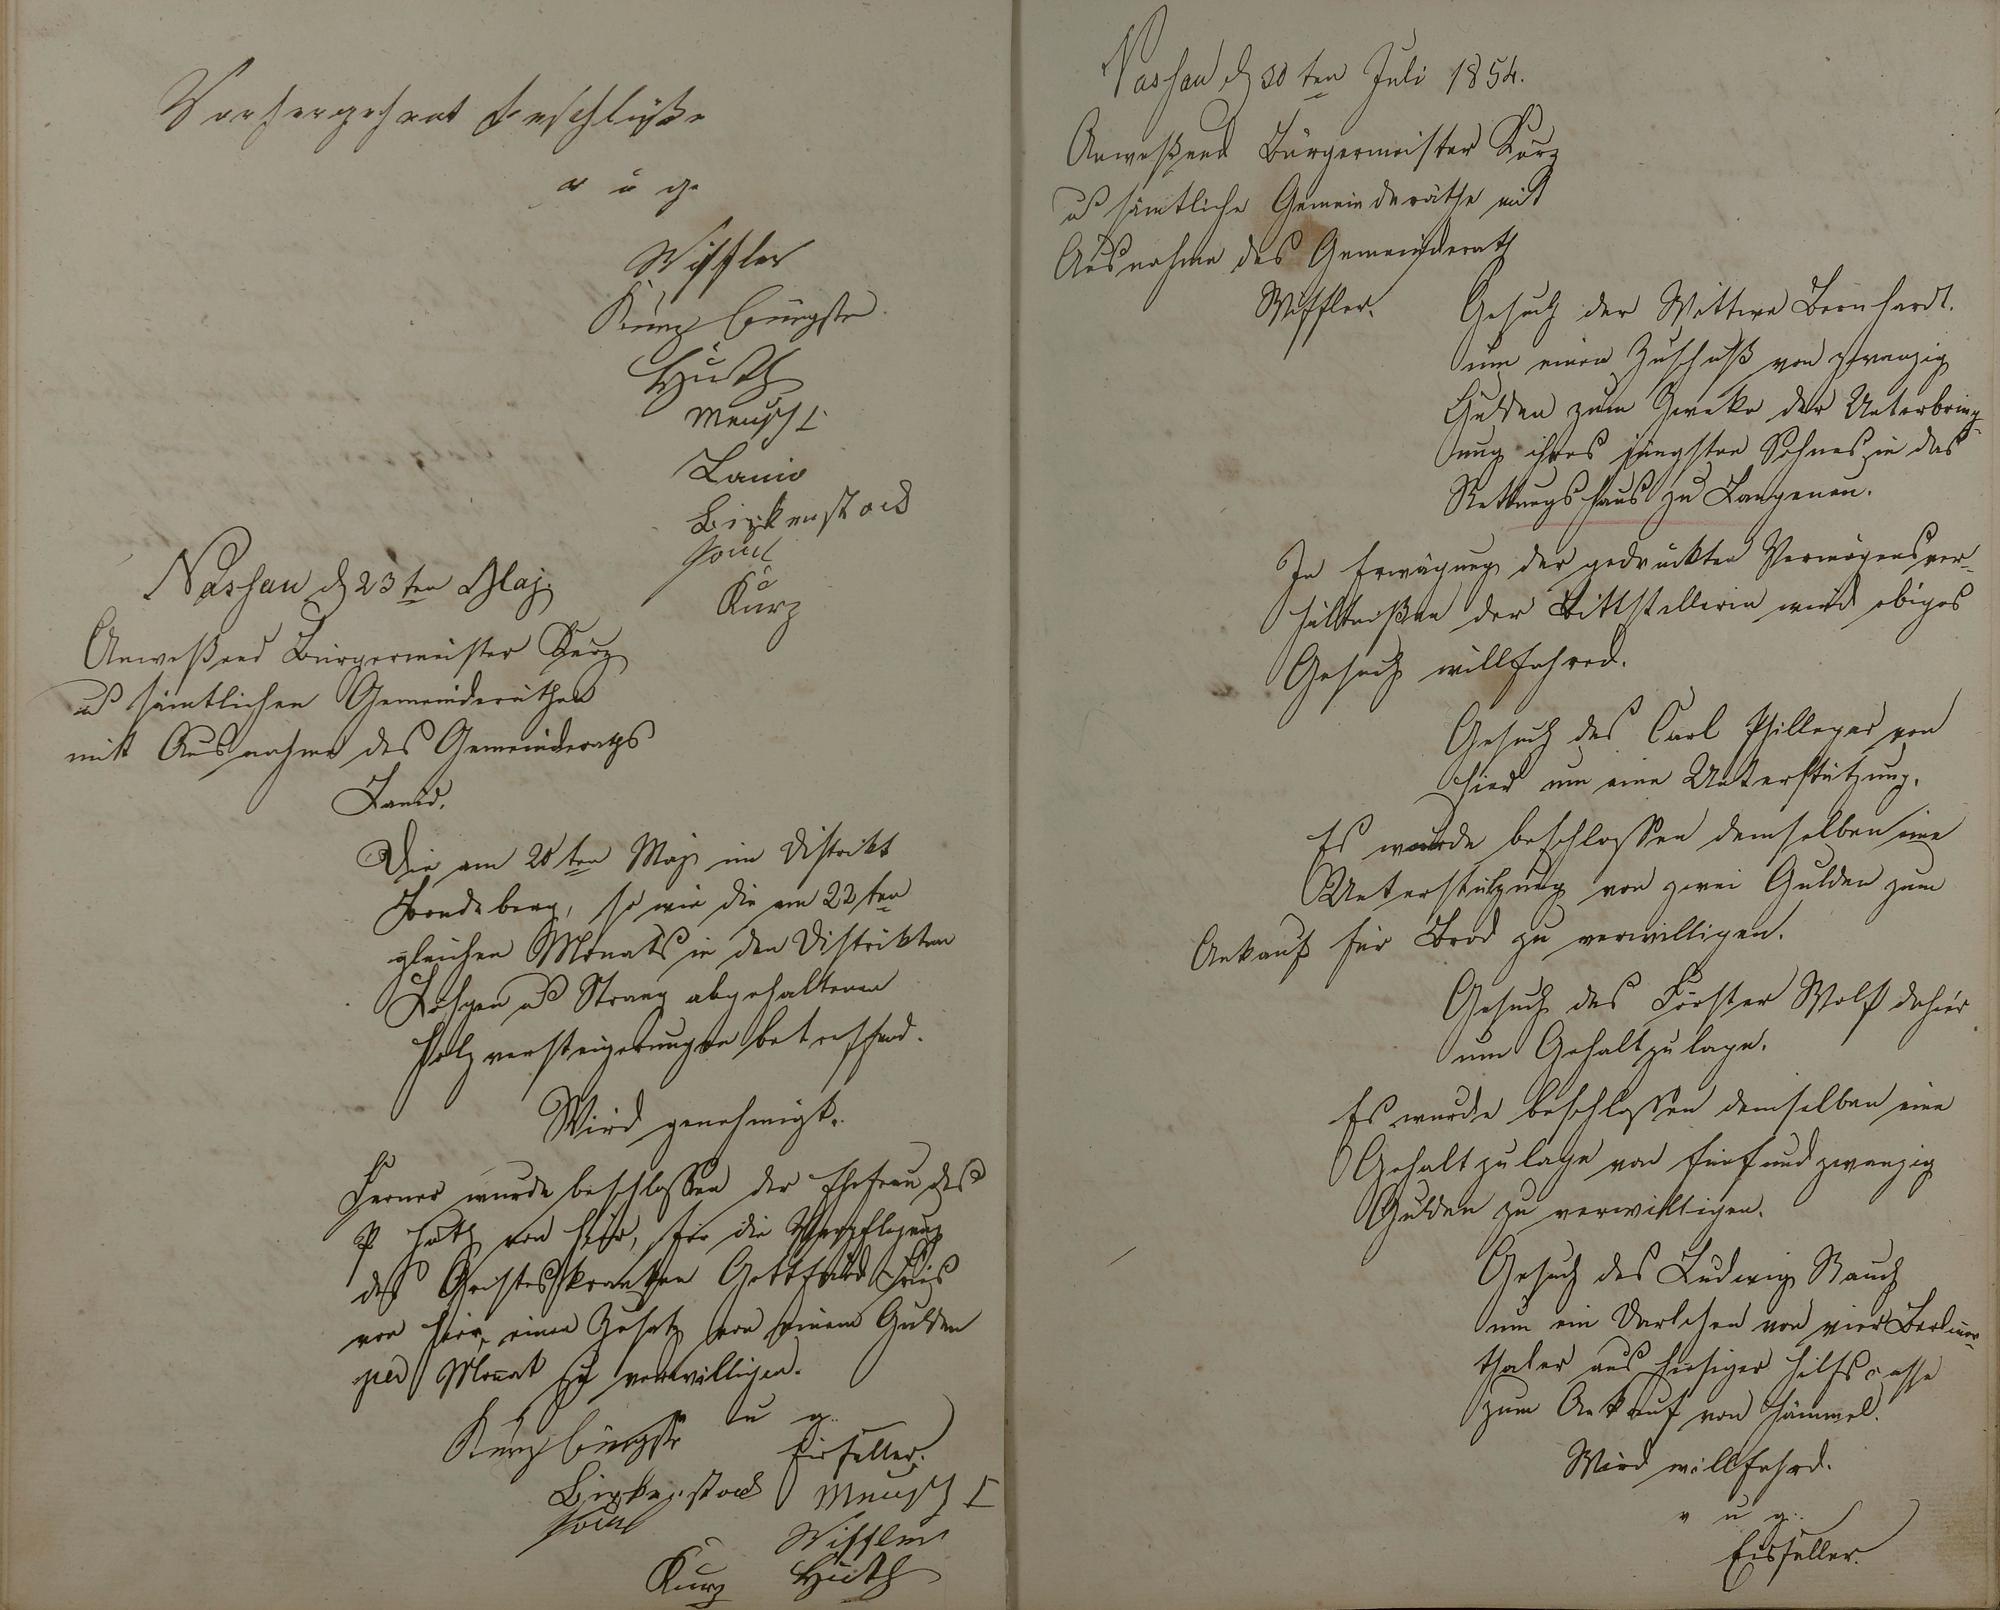 Vorhergehent Beschlüße
v u g.
Wiffler
Kurz Bürgstr.
Huth
Mensch I
Lanio
Birkenstock
Kurz
Nassau d 23ten Maj.
Anweßend Bürgermeister Kurz
u sämtlichen Gemeinderäthen
mit Ausnahme des Gemeinderaths
Lanio.
Die am 20ten Maj im Distrikt
so wie die am 22ten
gleichen Monats in den Distrikten
u Strang abgehaltenen
Holzversteigerungen betreffend.
Wird genehmigt.
Ferner wurde beschlossen der Ehefrau des
P Huth von hier, für die Verpflegung
des Geisteskranken Gottfried
von hier, einen Zusatz von einem Gulden
per Monat zu verwilligen.
v u g.
Kurz Bürgstr Eisfeller.
Birkenstock Mensch I
Wiffler
Kurz Huth
Nassau d 30ten Juli 1854.
Anweßend Bürgermeister Kurz
u sämtliche Gemeinderäthe mit
Ausnahme des Gemeinderath
Wiffler.
Gesuch der Wittwe Bernhardt.
um einen Zuschuß von zwanzig
Gulden zum Zweke der Unterbring-
ung ihres jüngsten Sohnes in das
Rettungshaus zu Langenau.
In Erwägung der gedrückten Vermögensver-
hältnißen der Bittstellerin wird obiges
Gesuch willfahred.
Gesuch des Carl von
hier um eine Unterstützung.
Es wurde beschlossen demselben eine
Unterstützung von zwei Gulden zum
Ankauf für Brod zu verwilligen.
Gesuch des Förster Wolf dahier
um Gehaltzulage.
Es wurde beschlossen demselben eine
Gehaltzulage von fünfundzwanzig
Gulden zu verwilligen.
Gesuch des Ludwig Rauch
um ein Darlehen von vier Berliner-
thaler aus hiesiger Hilfscasse
zum Ankauf von Hämmel.
Wird willfahrd.
v u g.
Eisfeller.